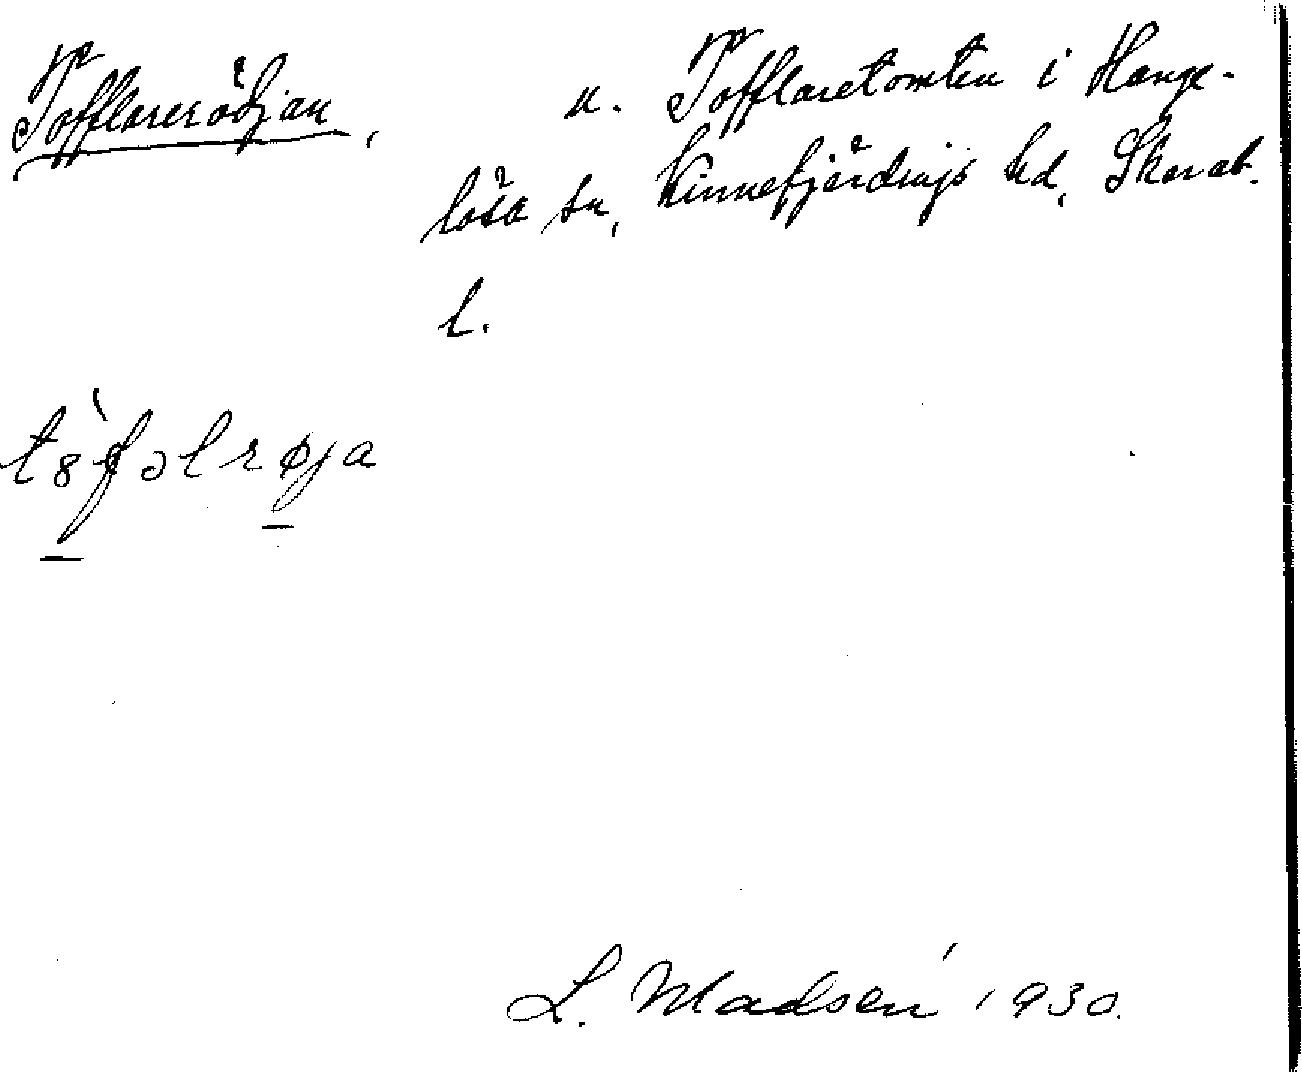 Tofflareröjan, u. Tofflaretomten i Hange-
lösa sn, Kinnefjärdings hd, Skarab.
l.
tȣ̀fəlrøja
L. Madsén 1930.